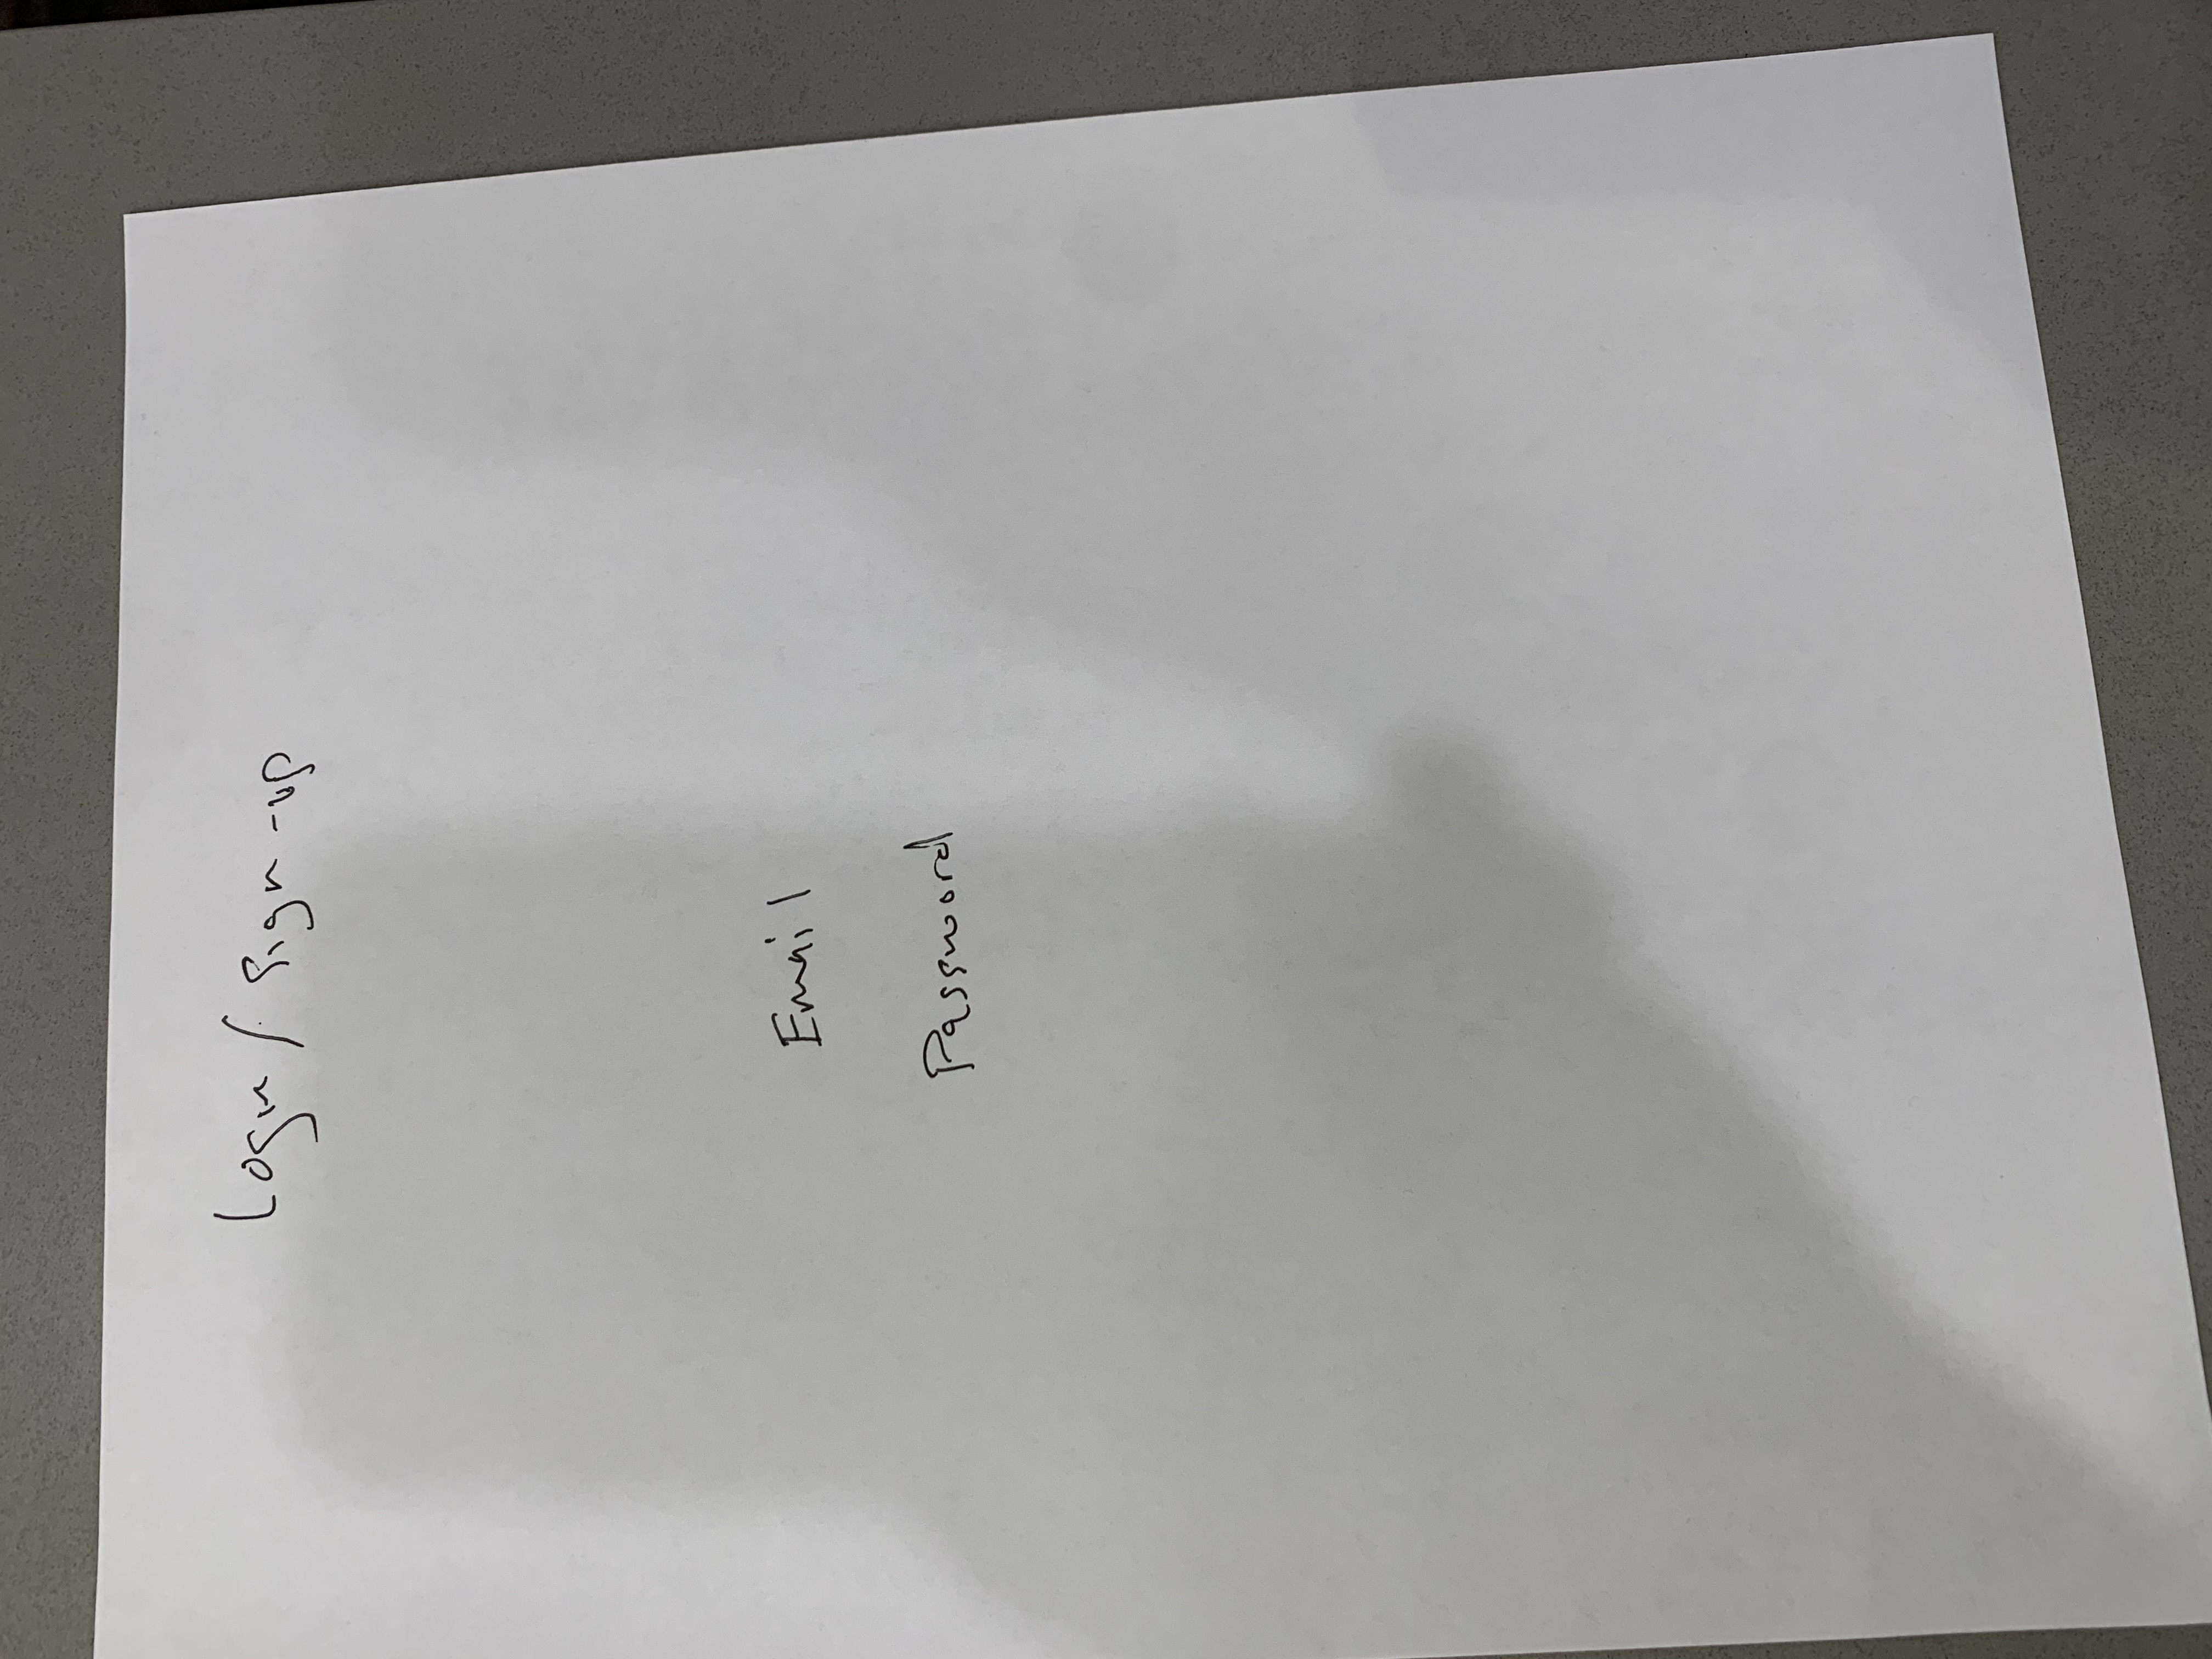 Login / Sign-up
Email
Password